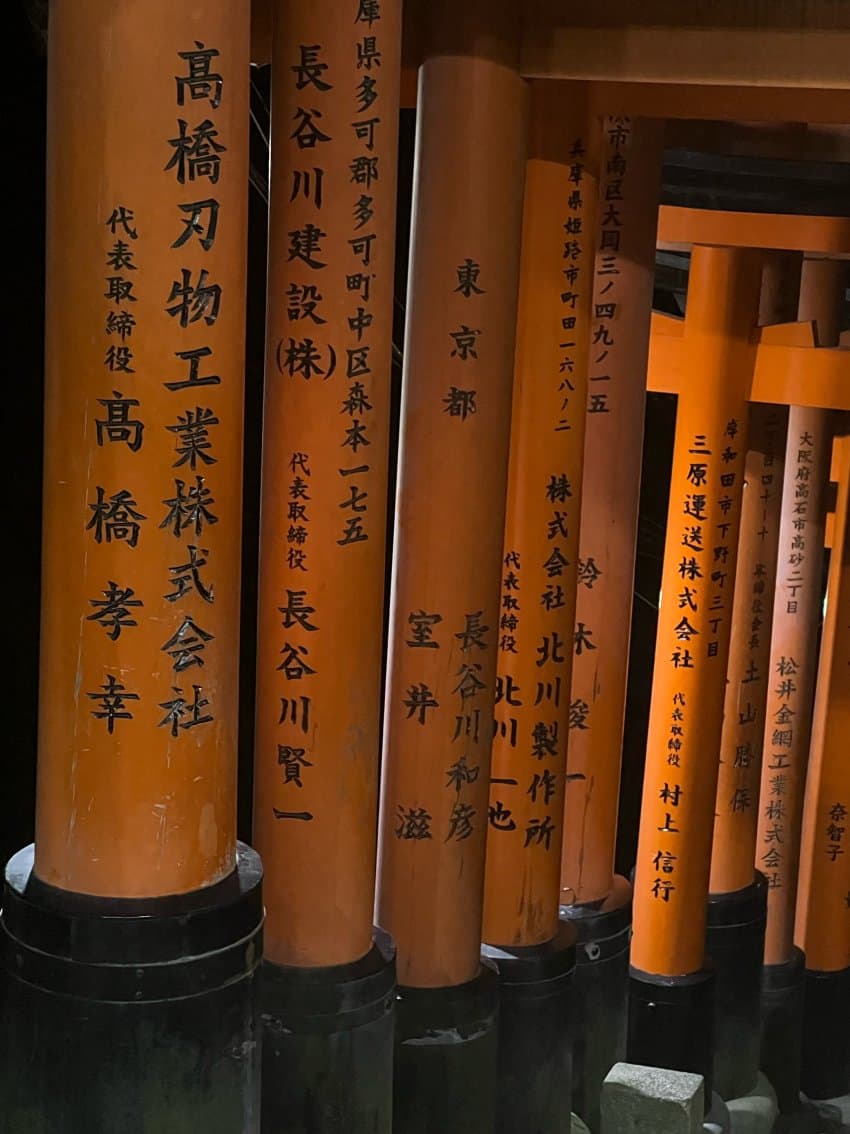 髙橋刃物工業株式会社
代表取締役 髙橋孝幸
庫県多可郡多可町中区森本一七五
長谷川建設(株)
代表取締役 長谷川賢一
東京都
長谷川和彦
室井滋
兵庫県姫路市町田一六八ノ二
株式会社北川製作所
代表取締役 北川一也
市南区大岡三ノ四九ノ一五
鈴木俊一
岸和田市下野町三丁目
三原運送株式会社
代表取締役 村上信行
土山勝保
大阪府高石市高砂二丁目
松井金網工業株式会社
奈智子